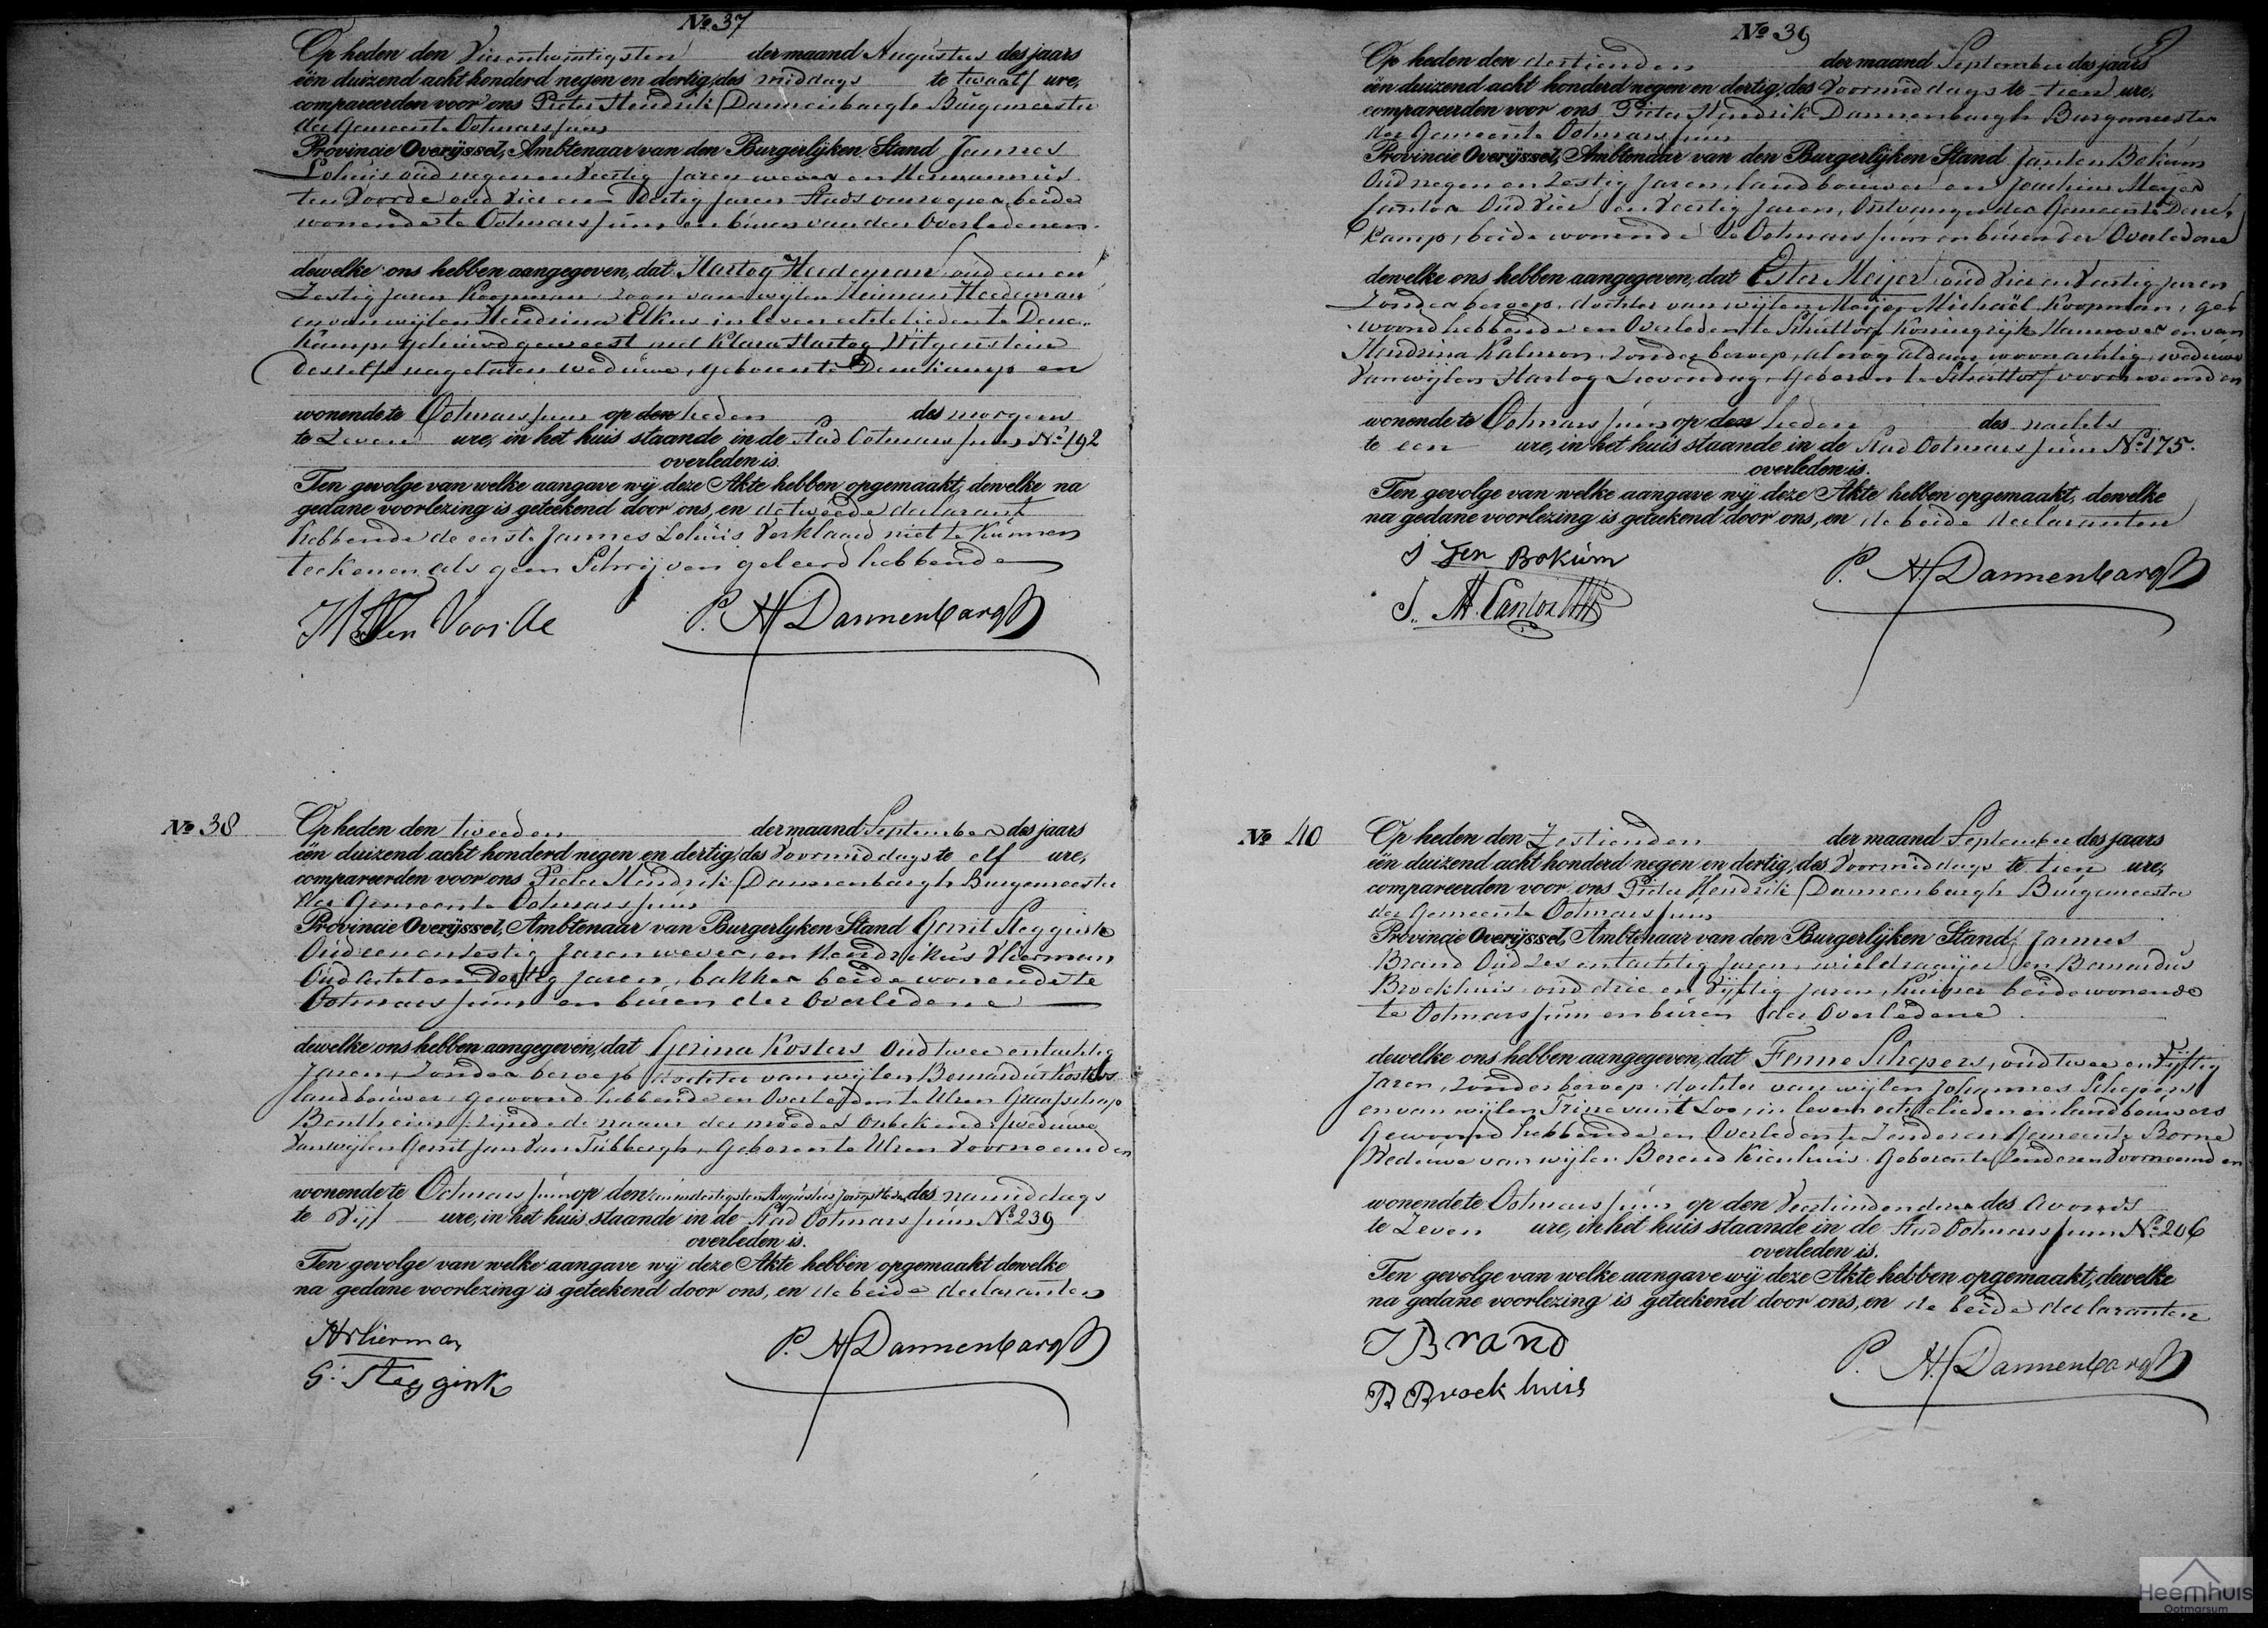 No 37
Op heden den Vierentwintigsten der maand Augustus des jaars
één duizend acht honderd negen en dertig, des middags te twaalf ure,
compareerden voor ons Pieter Hendrik Dannenbargh Burgemeester
der Gemeente Ootmarssum
Provincie Overijssel, Ambtenaar van den Burgerlijken Stand Jannes
Lohuis oud negen en Veertig Jaren wever en Hermannus
ten Voorde oud Vier en Dertig Jaren Stads omroeper beide
wonende te Ootmarssum en buren van den Overledenen
dewelke ons hebben aangegeven, dat Hartog Heideman oud een en
Zestig Jaren Koopman zoon van wijlen Heiman Heideman
en van wijlen Hendrina Elkus in leven echtelieden te Dene-
kamp, gehuwd geweest met Klara Hartog Witgenstein
deszelfs nagelaten weduwe, geboren te Denekamp en
wonende te Ootmarssum op den heden des morgens
te Zeven ure, in het huis staande in de Stad Ootmarssum No 192
overleden is.
Ten gevolge van welke aangave wij deze Akte hebben opgemaakt, dewelke na
gedane voorlezing is geteekend door ons, en de tweede declarant
hebbende de eerste Jannes Lohuis Verklaard niet te Kunnen
teekenen als geen Schrijven geleerd hebbende
H Ten Voorde P. H Dannenbargh
No 38
Op heden den tweeden der maand September des jaars
één duizend acht honderd negen en dertig, des Voormiddags te elf ure,
compareerden voor ons Pieter Hendrik Dannenbargh Burgemeester
der Gemeente Ootmarssum
Provincie Overijssel, Ambtenaar van Burgerlyken Stand Gerrit Steggink
Oud een en zestig Jaren wever, en Hendrikus Vlierman
Oud acht en Dertig Jaren, bakker beide wonende te
Ootmarssum en buren der Overledene
dewelke ons hebben aangegeven, dat Gerina Kosters Oud twee en tachtig
Jaren, Zonder beroep dochter van wijlen Bernardus Kosters
landbouwer, gewoond hebbende en Overleden te Ulsen Graafschap
Bentheim, zijnde de naam der moeder Onbekend, weduwe
van wijlen Gerrit Jan van Tubbergh, Geboren te Ulsen Voornoemd en
wonende te Ootmarssum op den een en dertigsten Augustus jongstleden des namiddags
te Vijf ure, in het huis staande in de Stad Ootmarssum No 239
overleden is.
Ten gevolge van welke aangave wij deze Akte hebben opgemaakt dewelke
na gedane voorlezing is geteekend door ons, en de beide declaranten
H vlierman
G. Steggink P. H Dannenbargh
No 39
Op heden den dertienden der maand September des jaars
één duizend acht honderd negen en dertig, des Voormiddags te tien ure,
compareerden voor ons Pieter Hendrik Dannenbargh Burgemeester
der Gemeente Ootmarssum
Provincie Overijssel, Ambtenaar van den Burgerlijken Stand Jan ten Bokum
Oud negen en Zestig Jaren, landbouwer en Joachim Meijer
Cantor Oud Vier en Veertig Jaren, Ontvanger der Gemeente Dene-
kamp, beide wonende te Ootmarssum en buren der Overledene
dewelke ons hebben aangegeven, dat Ester Meijer oud Vier en Veertig Jaren
Zonder beroep, dochter van wijlen Meijer Michaël Koopman, ge-
woond hebbende en Overleden te Schuttorf Koningrijk Hannover en van
Hendrina Kalmon, zonder beroep, alnog aldaar woonachtig, weduwe
van wijlen Hartog Levendag, Geboren te Schuttorf voornoemd en
wonende te Ootmarssum op den heden des nachts
te een ure, in het huis staande in de Stad Ootmarssum No 175.
overleden is.
Ten gevolge van welke aangave wij deze Akte hebben opgemaakt, dewelke
na gedane voorlezing is geteekend door ons, en de beide declaranten
J Ten Bokum
J. M. Cantor P. H Dannenbargh
No 40
Op heden den Zestienden der maand September des jaars
één duizend acht honderd negen en dertig, des Voormiddags te tien ure,
compareerden voor ons Pieter Hendrik Dannenbargh Burgemeester
der Gemeente Ootmarssum
Provincie Overijssel, Ambtenaar van den Burgerlijken Stand, Jannes
Brand Oud Zes en tachtig Jaren, wieldraaijer en Bernardus
Brockhuis oud drie en Vijftig Jaren, Kuiper beide wonende
te Ootmarssum en buren der Overledene
dewelke ons hebben aangegeven, dat Fenne Schepers, oud twee en Vijftig
Jaren, zonder beroep, dochter van wijlen Johannes Schepers
en van wijlen Trine van't Loo, in leven echtelieden en landbouwers
Gewoond hebbende en Overleden te Zenderen Gemeente Borne
Weduwe van wijlen Berend Kienhuis Geboren te Zenderen Voornoemd en
wonende te Ootmarssum op den Veertienden dezer des avonds
te Zeven ure, in het huis staande in de Stad Ootmarssum No 206
overleden is.
Ten gevolge van welke aangave wij deze Akte hebben opgemaakt, dewelke
na gedane voorlezing is geteekend door ons, en de beide declaranten
J Brand
B Brockhuis P. H. Dannenbargh
Heemhuis
Ootmarsum